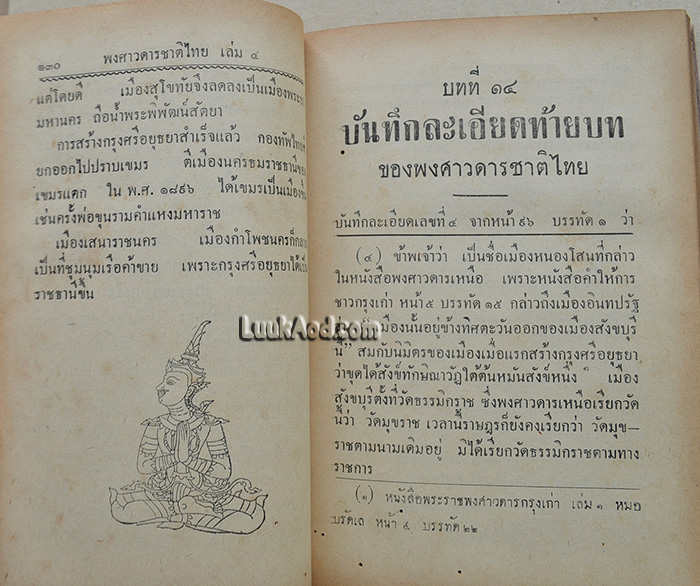 ๑๓๐ พงศาวดารชาติไทย เล่ม ๔
แต่โดยดี เมืองสุโขทัยจึงลดลงเป็นเมืองพระยา
มหานคร ถือน้ำพระพิพัฒน์สัตยา
การสร้างกรุงศรีอยุธยาสำเร็จแล้ว กองทัพไทย
ยกออกไปปราบเขมร ตีเมืองนครธมราชธานีของ
เขมรแตก ใน พ.ศ. ๑๘๙๖ ได้เขมรเป็นเมืองขึ้น
เช่นครั้งพ่อขุนรามคำแหงมหาราช
เมืองเสนาราชนคร เมืองกำโพชนครก็
เป็นที่ชุมนุมเรือค้าขาย เพราะกรุงศรีอยุธยาได้เป็น
ราชธานีขึ้น
LuukAod.com
บทที่ ๑๔
บันทึกละเอียดท้ายบท
ของพงศาวดารชาติไทย
บันทึกละเอียดเลขที่ ๔ จากหน้า ๙๖ บรรทัด ๑ ว่า
(๔) ข้าพเจ้าว่า เป็นชื่อเมืองหนองโสนที่กล่าว
ในหนังสือพงศาวดารเหนือ เพราะหนังสือคำให้การ
ชาวกรุงเก่า หน้า ๕ บรรทัด ๑๕ กล่าวถึงเมืองอินทปรัฐ
ว่า “เมืองนั้นอยู่ข้างทิศตะวันออกของเมืองสังขบุรี
นี้” สมกับนิมิตรของเมืองเมื่อแรกสร้างกรุงศรีอยุธยา
ว่าขุดได้สังข์ทักษิณาวัฏใต้ต้นหมันสังข์หนึ่ง ๑ เมือง
สังขบุรีตั้งที่วัดธรรมิกราช ซึ่งพงศาวดารเหนือเรียกวัด
นี้ว่า วัดมุขราช เวลานี้ราษฎรก็ยังคงเรียกว่า วัดมุข—
ราชตามนามเดิมอยู่ มิได้เรียกวัดธรรมิกราชตามทาง
ราชการ
(๑) หนังสือพระราชพงศาวดารกรุงเก่า เล่ม ๑ หมอ
บรัดเล หน้า ๙ บรรทัด ๒๒